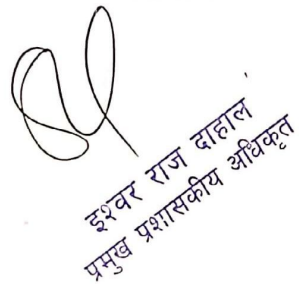 इश्वर राज दाहाल
प्रमुख प्रशासकीय अधिकृत